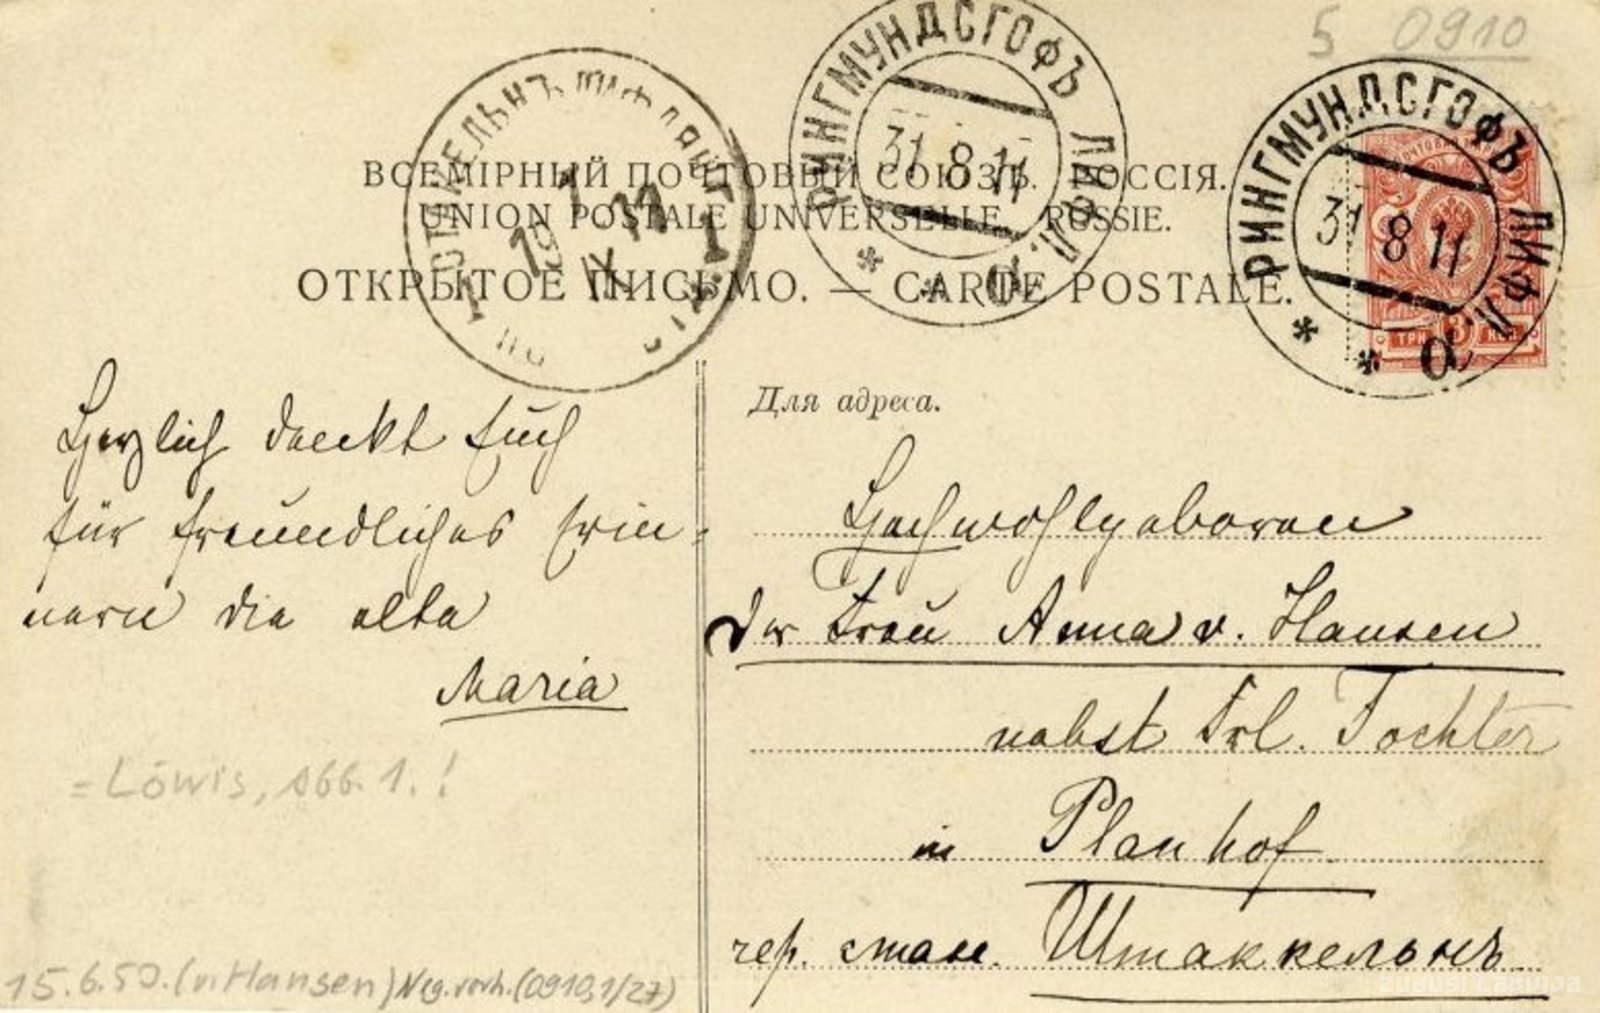 5 0910
РИНГМУНДСГОФЪ ЛИФЛ.
31 8 11
РИНГМУНДСГОФЪ ЛИФЛ.
31 8 11
ТРИ 3 КОП
ВСЕМІРНЫЙ ПОЧТОВЫЙ СОЮЗЪ. РОССІЯ.
UNION POSTALE UNIVERSELLE. RUSSIE.
ОТКРЫТОЕ ПИСЬМО. — CARTE POSTALE.
Для адреса.
Herzlich danckt Euch
für freundliches Erin-
nern die alte
Maria
= Löwis, Abb. 1.!
15.6.50. (v. Hansen) Neg. vorh. (0910,1/27)
Hochwohlgeboren
der Frau Anna v. Hansen
nebst Frl. Tochter
in Planhof
чер. стан. Штаккельнъ
zudusi Latvija